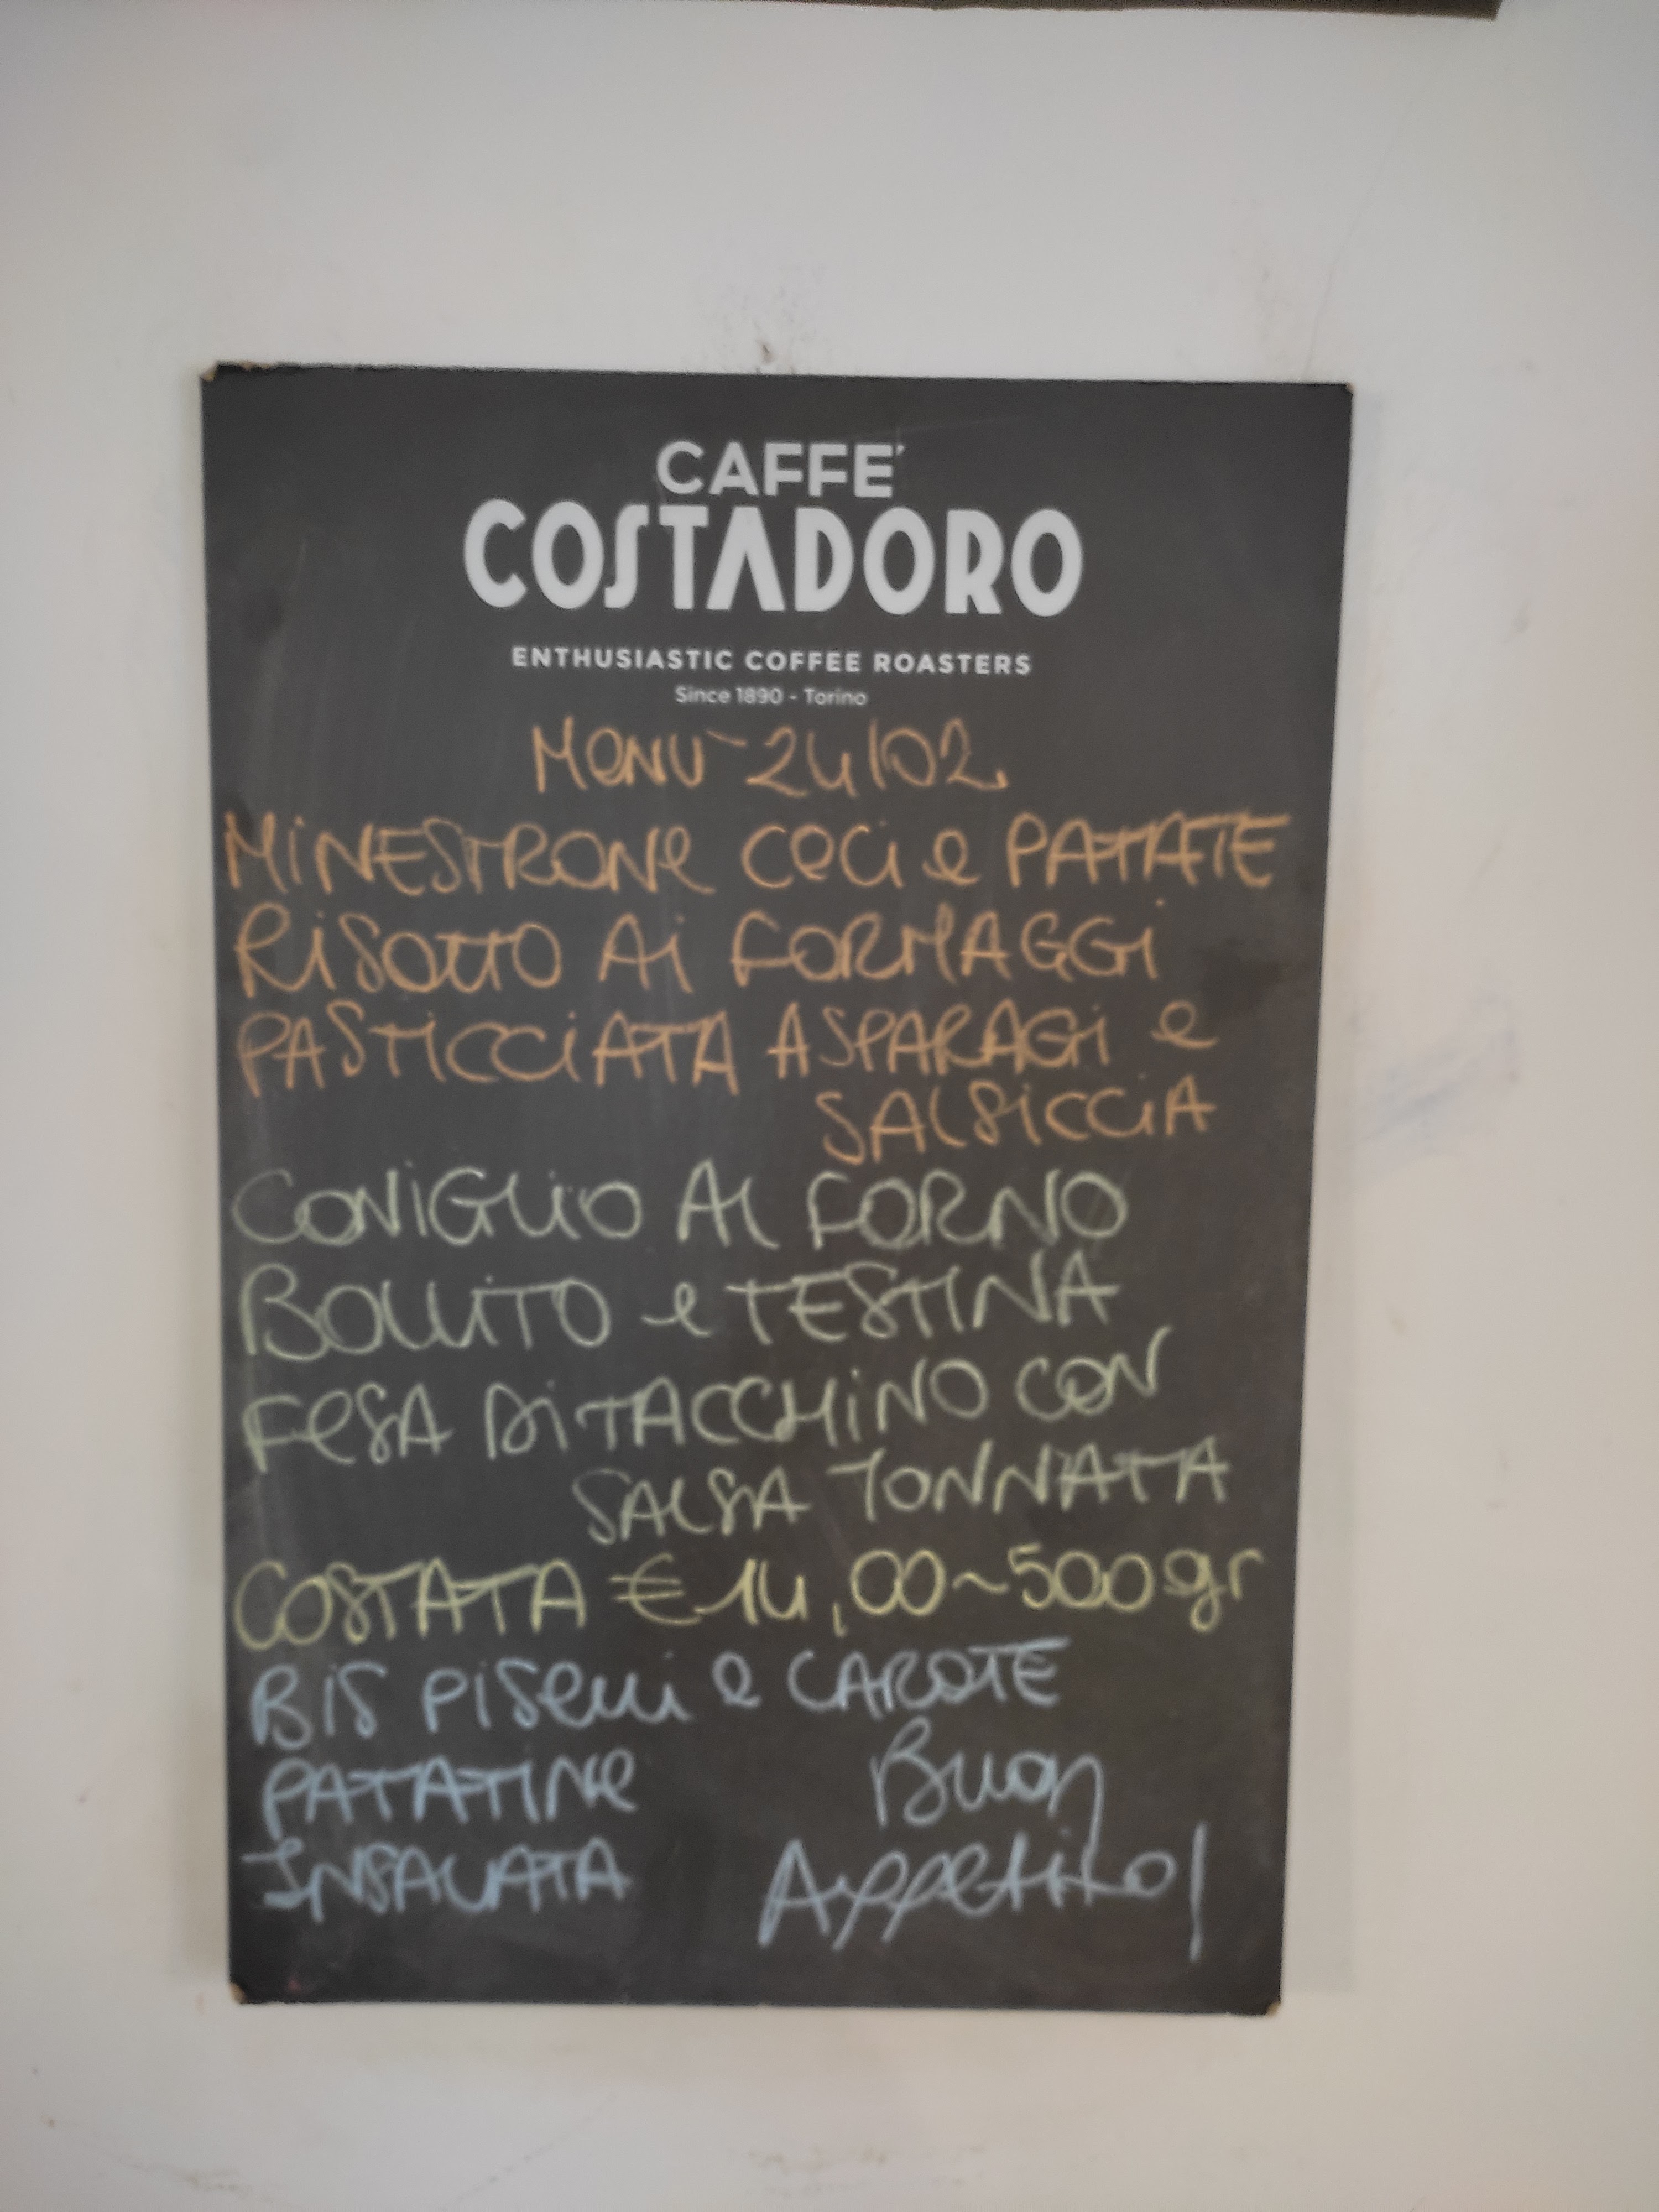 CAFFE'
COSTADORO
ENTHUSIASTIC COFFEE ROASTERS
Since 1890 - Torino
MeNU' 24/02
MiNESTRONe CeCi e PATATE
RiSOTTO Ai FORMAGGi
PASTiCCiATA ASPARAGi e
SALSiCCiA
CONiGLIO AL FORNO
BOLLITO e TESTINA
FeSA Di TACCHiNO CON
SALSA TONNATA
COSTATA € 14,00~500gr
BiS PiSeLLi e CAROTE
PATATINe
Buon
INSALATA
Appetito!